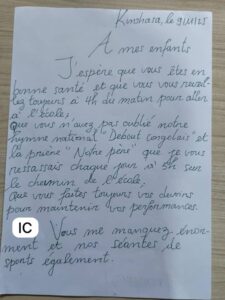 Kinshasa, le 9/11/25
A mes enfants
J'espère que vous êtes en
bonne santé et que vous vous reveil-
lez toujours à 4h du matin pour aller
à l'école;
Que vous n'avez pas oublié notre
hymne national "Debout congolais" et
la prière "Notre père" que je vous
ressassais chaque jour à 5h sur
le chemin de l'école;
Que vous faites toujours vos devoirs
pour maintenir vos performances.
IC
Vous me manquez énor-
mément et nos séantes de
sports également.